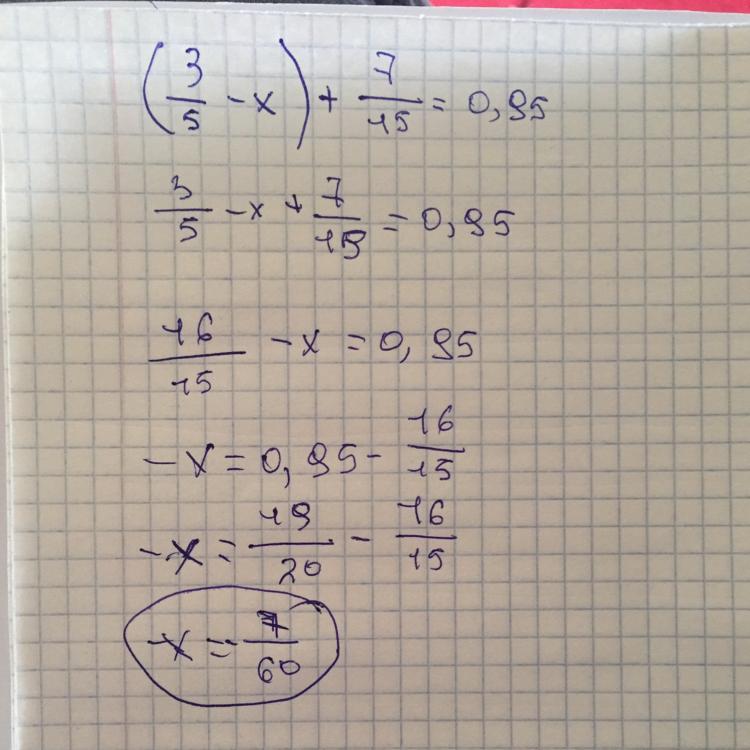 (3/5 - x) + 7/15 = 0,95
3/5 - x + 7/15 = 0,95
16/15 - x = 0,95
-x = 0,95 - 16/15
-x = 19/20 - 16/15
-x = 7/60